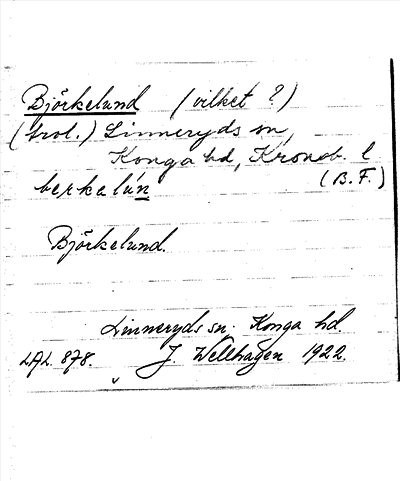 Björkelund (vilket ?)
(trol.) Linneryds sn,
Konga hd, Kronob. l
berkalun (B. F.)
Björkelund.
Linneryds sn. Konga hd.
LAL. 878. J. Wellhagen 1922.